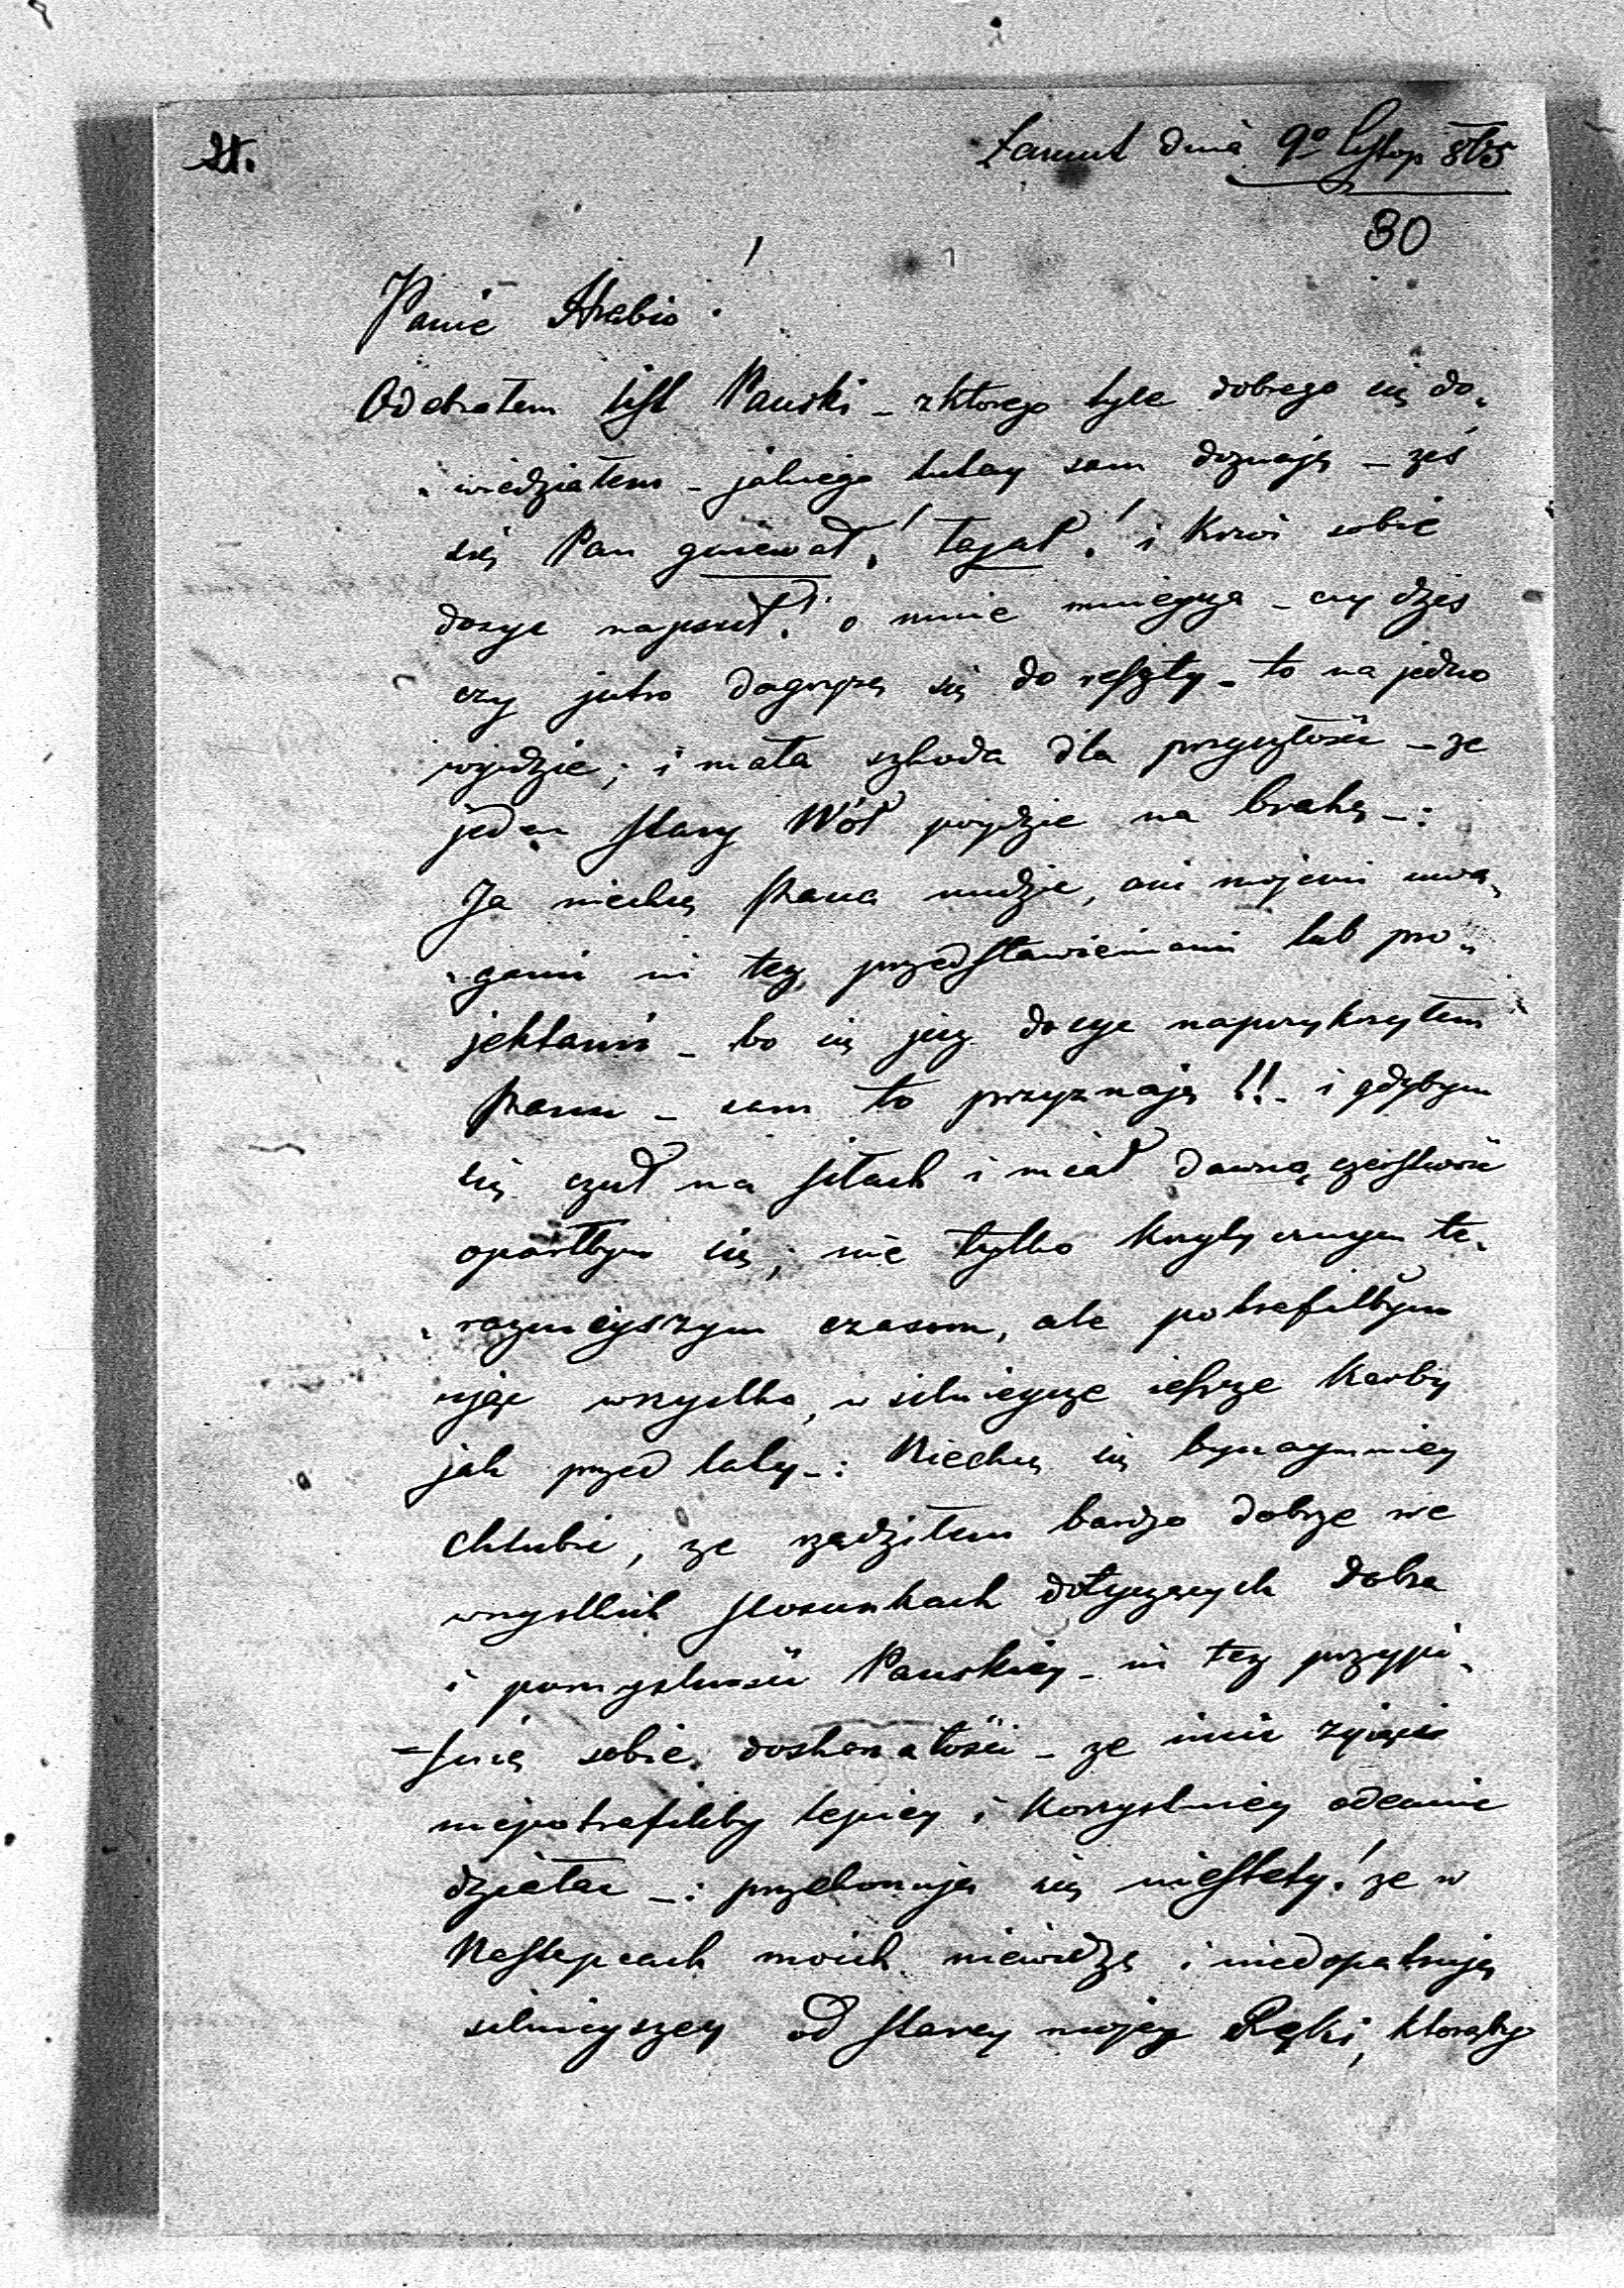 21.
Łancut dnia 9º Listop 875
80
Panie Hrabio!
Odebrałem list Pański – z ktorego tyle dobrego się do„
„wiedziałem – jakiego tutay sam doznaję – żeś
się Pan gniewał! łajał! i Krwi sobie
dosyc napsuł! o mnie mnieysza – czy dzis
czy jutro dogryzę się do reszty – to na jedno
wyjdzie; i mała szkoda dla przyszłości – ze
jeden stary Wół pojdzie na brahę –:
Ja niechcę Pana nudzic, ani mojemi uwa„
„gami ni tez przedstawieniami lub pro„
jektami – bo się juz dosyc naprzykrzyłem
Panu – sam to przyznaję!! – i gdybym
się czuł na siłach i miał dawną czerstwość
oparłbym się; nie tylko krytycznym te„
„razniejszym czasom, ale potrafiłbym
ująć wszystko, w silnieysze ieszcze Karby
jak przed laty –: Niechcę się bynaymniey
chlubić, ze rządziłem bardzo dobrze we
wszystkich stosunkach dotyczących dobra
i pomyslności Panskiey – ni tez przypi„
=suię sobie doskonałości – ze inni żyiący
niepotrafiliby lepiey i Korzystniey odemnie
działac –: przekonuję się niestety! ze w
Nastepcach moich niewidzę i niedopatruję
silnieyszey od starey mojey Ręki, ktoraby